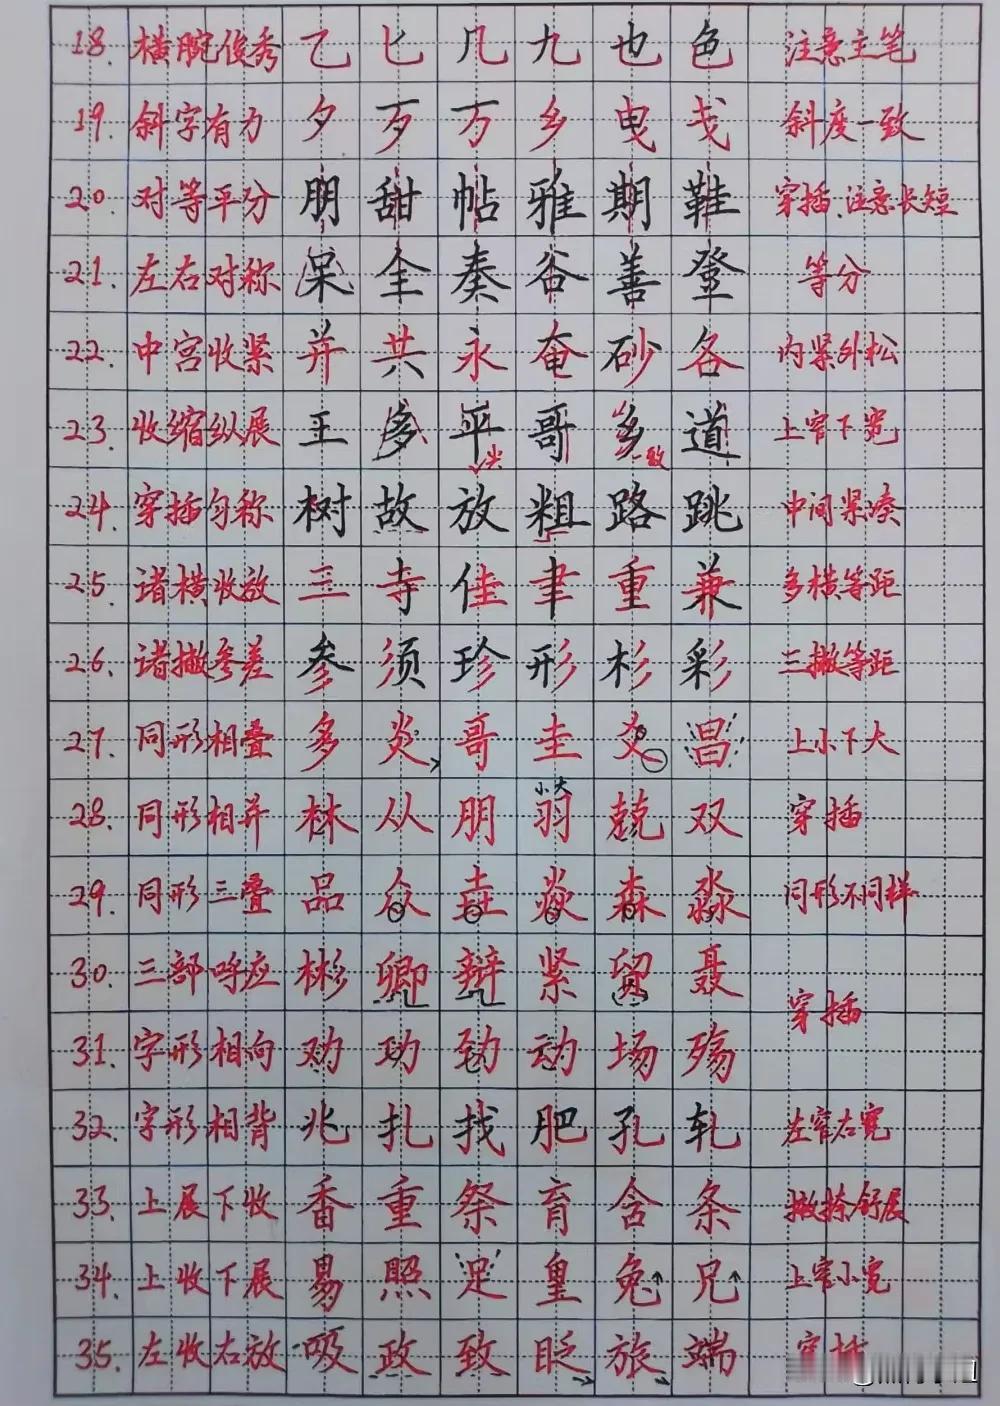 18. 横腕俊秀 乙 匕 几 九 也 色 注意主笔
19. 斜字有力 夕 歹 万 乡 曳 戋 斜度一致
20. 对等平分 朋 甜 帖 雅 期 鞋 穿插.注意长短
21. 左右对称 杲 全 奏 谷 善 登 等分
22. 中宫收紧 并 共 永 奄 砂 各 内紧外松
23. 收缩纵展 王 多 平 哥 乡 道 上窄下宽
尖 一致
24. 穿插匀称 树 故 放 粗 路 跳 中间紧凑
25. 诸横收放 三 寺 佳 聿 重 兼 多横等距
26. 诸撇参差 参 须 珍 形 杉 彩 三撇等距
27. 同形相叠 多 炎 哥 圭 爻 昌 上小下大
小大
28. 同形相并 林 从 朋 羽 兢 双 穿插
29. 同形三叠 品 众 垚 焱 森 淼 同形不同样
30. 三部呼应 彬 卿 辩 紧 留 聂
穿插
31. 字形相向 劝 功 劲 动 场 殇
32. 字形相背 兆 扎 找 肥 孔 轧 左窄右宽
33. 上展下收 番 重 祭 育 含 条 撇捺舒展
34. 上收下展 易 照 足 皇 兔 兄 上窄小宽
35. 左收右放 吸 政 致 眨 旅 端 穿插